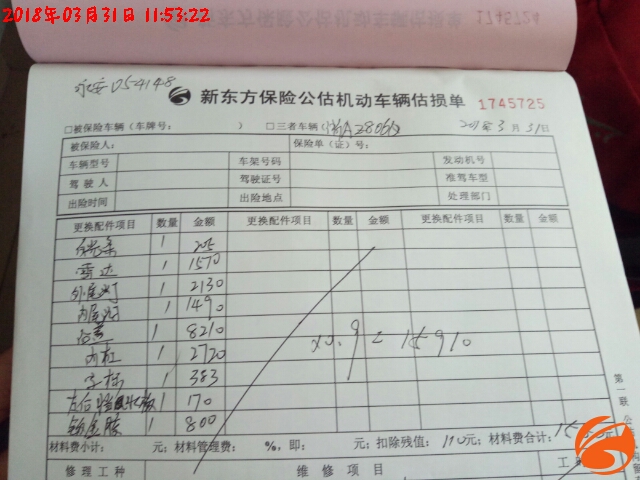 2018年03月31日 11:53:22
1745724
永安 D54148
新东方保险公估机动车辆估损单 1745725
□被保险车辆(车牌号: ) □三者车辆( 2018年3月31日
被保险人: 保险单(证)号:
车辆型号 车架号码 发动机号
驾驶人 驾驶证号 准驾车型
出险时间 出险地点 处理部门
更换配件项目 数量 金额 更换配件项目 数量 金额 更换配件项目 数量 金额
1
雷达 1 1570
外尾灯 1 2130
内尾灯 1 1490
后盖 1 8210
内杠 1 2720
字标 1 383
1 170
钣金胶 1 800
×0.9=15910
材料费小计: 元;材料管理费: %,即: 元;扣除残值:110元;材料费合计:
修理工种 维修项目 工
第一联 公